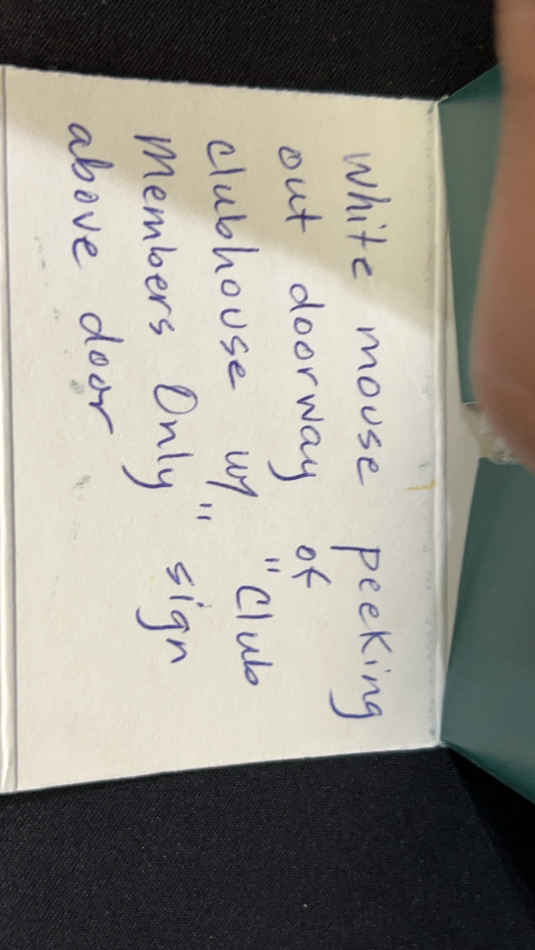 White mouse peeking
out doorway of
clubhouse w/ "Club
Members Only" sign
above door